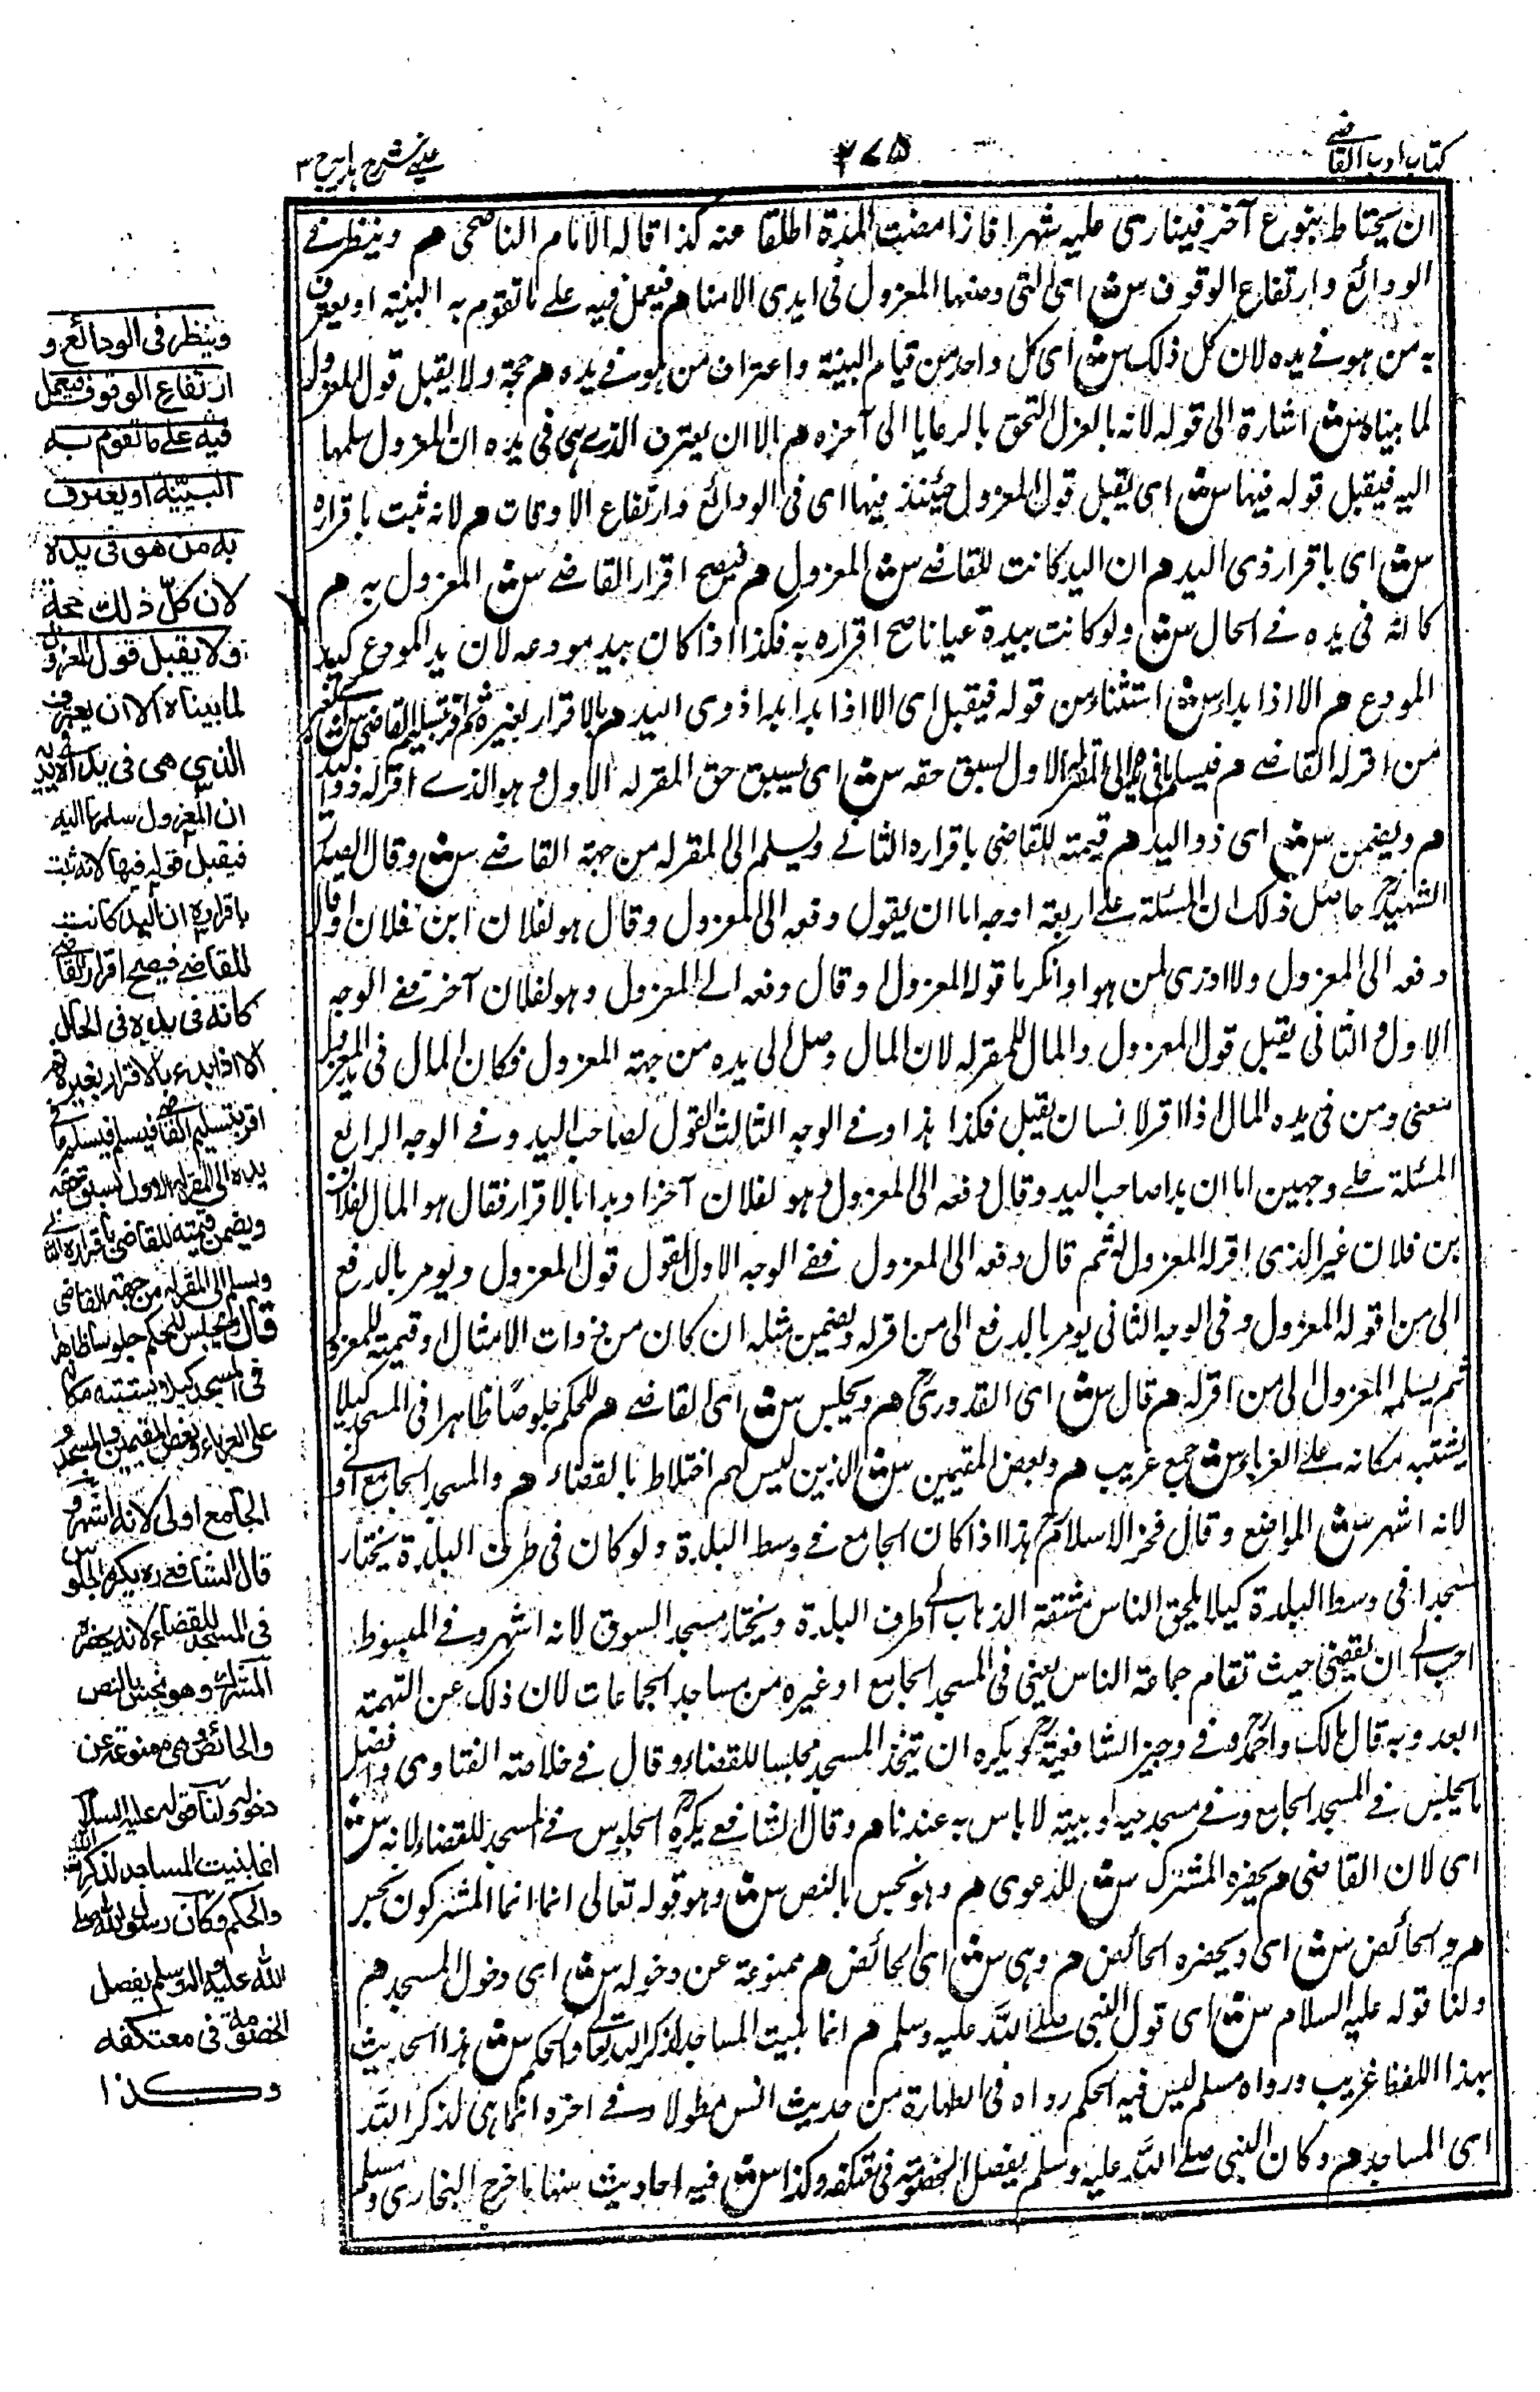 كتاب ادب القاضے
٢٦٥
عينے شرح ہدایہ ج ٣
ان يحتاط بنوع آخر فينادى عليه شهرا فاذا مضت المدة اطلقا عنه كذا قاله الامام الناصحى هم وينظر فے
الودائع وارتفاع الوقوف سش اى التى وضعها المعزول فى ايدى الامناء هم فيعمل فيه علے ما تقوم به البينة او يعترف
به من هو فے يده لان كل ذلك سش اى كل واحد من قيام البينة واعتراف من هو فے يده هم حجة ولا يقبل قول المعزول
لما بيناه سش اشارة الى قوله لانه بالعزل التحق بالرعايا الى آخره هم الا ان يعترف الذے هى فى يده ان المعزول سلمها
اليه فيقبل قوله فيها سش اى يقبل قول المعزول حينئذ فيها اى فى الودائع وارتفاع الاوقات هم لانه ثبت باقراره
سش اى باقرار ذى اليد هم ان اليد كانت للقاضے سش المعزول هم فيصح اقرار القاضے سش المعزول به هم
كانه فى يده فے الحال سش ولو كانت بيده عيانا صح اقراره به فكذا اذا كان بيد مودعه لان يد المودع كيد
المودع هم الا اذا بدا سش استثناء من قوله فيقبل اى الا اذا بدا بدا ذوى اليد هم بالاقرار لغيره ثم اقر بتسليم القاضى
من اقر له القاضے هم فيسلم ما فى يده الى المقر له الاول لسبق حقه سش اى لسبق حق المقر له الاول وهو الذے اقر له ذو اليد
هم ويضمن سش اى ذو اليد هم قيمته للقاضى باقراره الثانے ويسلم الى المقر له من جهة القاضے سش وقال الصدر
الشهيد حاصل ذلك ان المسئلة علے اربعة اوجه اما ان يقول دفعه الى المعزول وقال هو لفلان ابن فلان او قال
دفعه الى المعزول ولا ادرى لمن هو او انكر ما قوله المعزول او قال دفعه الے المعزول وهو لفلان آخر ففے الوجه
الاول والثانى يقبل قول المعزول والمال للمقر له لان المال وصل الى يده من جهة المعزول فكان المال فى يد المعزول
معنى ومن فى يده المال اذا اقر لانسان يقبل فكذا هذا وفے الوجه الثالث القول لصاحب اليد وفے الوجه الرابع
المسئلة علے وجهين اما ان بدا صاحب اليد وقال دفعه الى المعزول وهو لفلان آخر او بدا بالاقرار فقال هو المال لفلان
بن فلان غير الذى اقر له المعزول ثم قال دفعه الى المعزول ففے الوجه الاول القول قول المعزول ويومر بالدفع
الى من اقر له المعزول وفى الوجه الثانى يومر بالدفع الى من اقر له ويضمن مثله ان كان من ذوات الامثال او قيمته للمعزول
ثم يسلمه المعزول الى من اقر له هم قال سش اى القدورى هم ويجلس سش اى القاضے هم للحكم جلوسًا ظاهرا فى المسجد كيلا
يشتبه مكانه علے الغرباء سش جمع غريب هم وبعض المقيمين سش الذين ليس لهم اختلاط بالقضاء هم والمسجد الجامع اولے
لانه اشهر سش المواضع وقال فخر الاسلام هذا اذا كان الجامع فے وسط البلدة ولو كان فى طرف البلدة يختار
مسجدا فى وسط البلدة كيلا يلحق الناس مشقة الذهاب الے طرف البلدة ويختار مسجد السوق لانه اشهر وفے المبسوط
احب الے ان يقضى حيث تقام جماعة الناس يعنى فى المسجد الجامع او غيره من مساجد الجماعات لان ذلك عن التهمة
ابعد وبه قال مالك واحمد وفے وجيز الشافعية ويكره ان يتخذ المسجد مجلسا للقضاء وقال فے خلاصة الفتاوى وافضل
ما يجلس فے المسجد الجامع وفے مسجد حيه او بيته لا باس به عندنا هم وقال الشافعے يكره الجلوس فے المسجد للقضاء لانه سش
اى لان القاضى هم يحضره المشترك سش للدعوى هم وهو نجس بالنص سش وهو قوله تعالى انما انما المشركون نجس
هم والحائض سش اى ويحضره الحائض هم وهى سش اى الحائض هم ممنوعة عن دخوله سش اى دخول المسجد هم
ولنا قوله عليه السلام سش اى قول النبى صلے الله عليه وسلم هم انما بنيت المساجد لذكر الله تعالے والحكم سش هذا الحديث
بهذا اللفظ غريب ورواه مسلم ليس فيه الحكم رواه فى الطهارة من حديث انس مطولا وفے اخره انما هى لذكر الله
اى المساجد هم وكان النبى صلے الله عليه وسلم يفصل الخصومة فى معتكفه وكذا سش فيه احاديث منها ما اخرج البخارى ومسلم
وينظر فى الودائع و
ارتفاع الوقوف فيعمل
فيه علے ما تقوم به
البيّنة او يعترف
به من هو فى يده
لان كلّ ذلك حجة
ولا يقبل قول المعزول
لما بيناه الا ان يعترف
الذى هى فى يده
ان المعزول سلمها اليه
فيقبل قوله فيها لانه ثبت
باقراره ان اليد كانت
للقاضے فيصح اقرار القاضے
كانه فى يده فى الحال
الا اذا بدء بالاقرار لغيره ثم
اقر بتسليم القاضے فيسلم ما فے
يده الى المقر له الاول لسبق حقه
ويضمن قيمته للقاضى باقراره الثانے
ويسلم الى المقر له من جهة القاضى
قال ويجلس للحكم جلوسا ظاهرا
فى المسجد كيلا يشتبه مكانه
على الغرباء وبعض المقيمين والمسجد
الجامع اولى لانه اشهر و
قال الشافعے ره يكره الجلوس
فى المسجد للقضاء لانه يحضره
المشرك وهو نجس بالنص
والحائض وهى ممنوعة عن
دخوله ولنا قوله عليه السلام
انما بنيت المساجد لذكر الله
والحكم وكان رسول الله صلے
الله عليه وآله وسلم يفصل
الخصومة فى معتكفه
وكذا